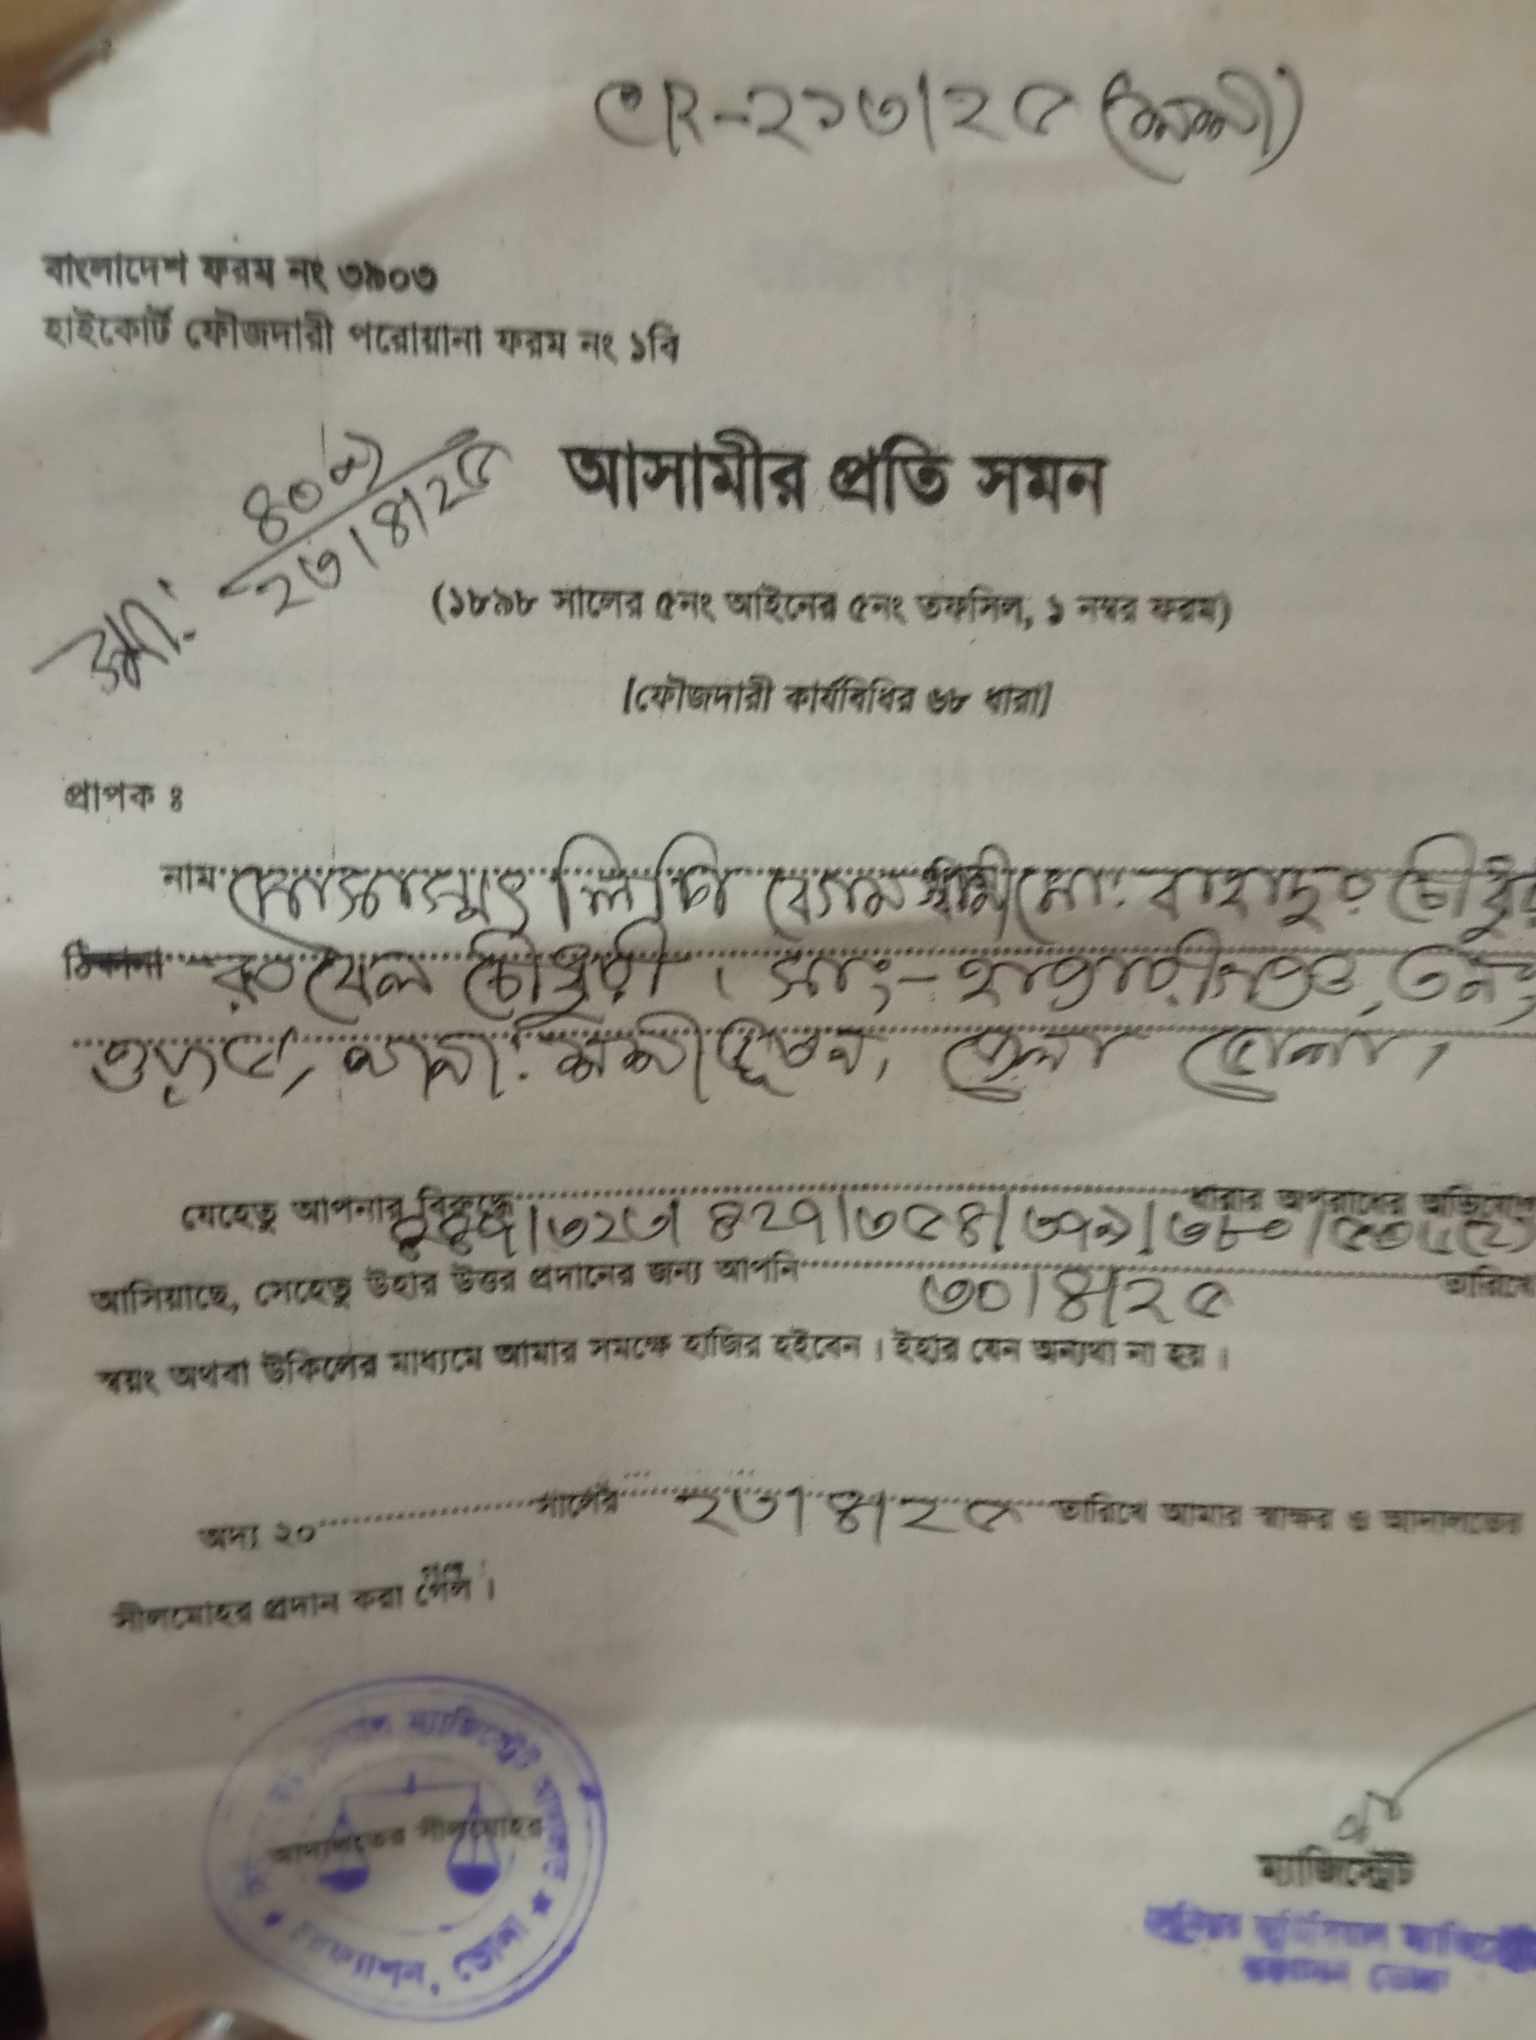 CR-২১৩/২৫
বাংলাদেশ ফরম নং ৩৯০৩
হাইকোর্ট ফৌজদারী পরোয়ানা ফরম নং ১বি
২৩/৪/২৫
আসামীর প্রতি সমন
(১৮৯৮ সালের ৫নং আইনের ৫নং তফসিল, ১ নম্বর ফরম)
[ফৌজদারী কার্যবিধির ৬৮ ধারা]
প্রাপক ঃ
নাম মোসাম্মৎ লিপি বেগম স্বামী মো. বাহাদুর চৌধুরী
ঠিকানা চৌধুরী । সাং-
জেলা ভোলা,
যেহেতু আপনার বিরুদ্ধে /৩২৩/ ৪২৭/৩৫৪/৩৭৯/৩৮০/৫০৬(২) ধারার অপরাধের অভিযোগ
আসিয়াছে, সেহেতু উহার উত্তর প্রদানের জন্য আপনি ৩০/৪/২৫ তারিখে
স্বয়ং অথবা উকিলের মাধ্যমে আমার সমক্ষে হাজির হইবেন । ইহার যেন অন্যথা না হয় ।
অদ্য ২০ সালের ২৩/৪/২৫ তারিখে আমার স্বাক্ষর ও আদালতের
সীলমোহর প্রদান করা গেল ।
ম্যাজিস্ট্রেট আদালত
আদালতের সীলমোহর
চরফ্যাশন, ভোলা
ম্যাজিস্ট্রেট
জুনিয়র জুডিসিয়াল ম্যাজিস্ট্রেট
ভোলা